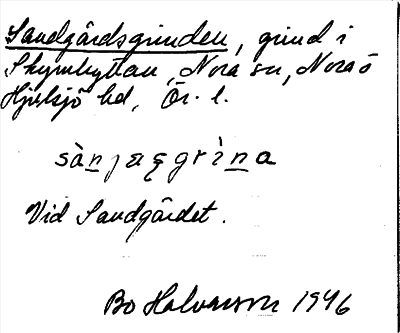 Sandgårdsgrinden, grind i
Skymhyttan, Nora sn, Nora o
Hjulsjö bd, Ör. l.
sàn̲jaꞔgrìn̲a
Vid Sandgärdet.
Bo Halvarson 1946